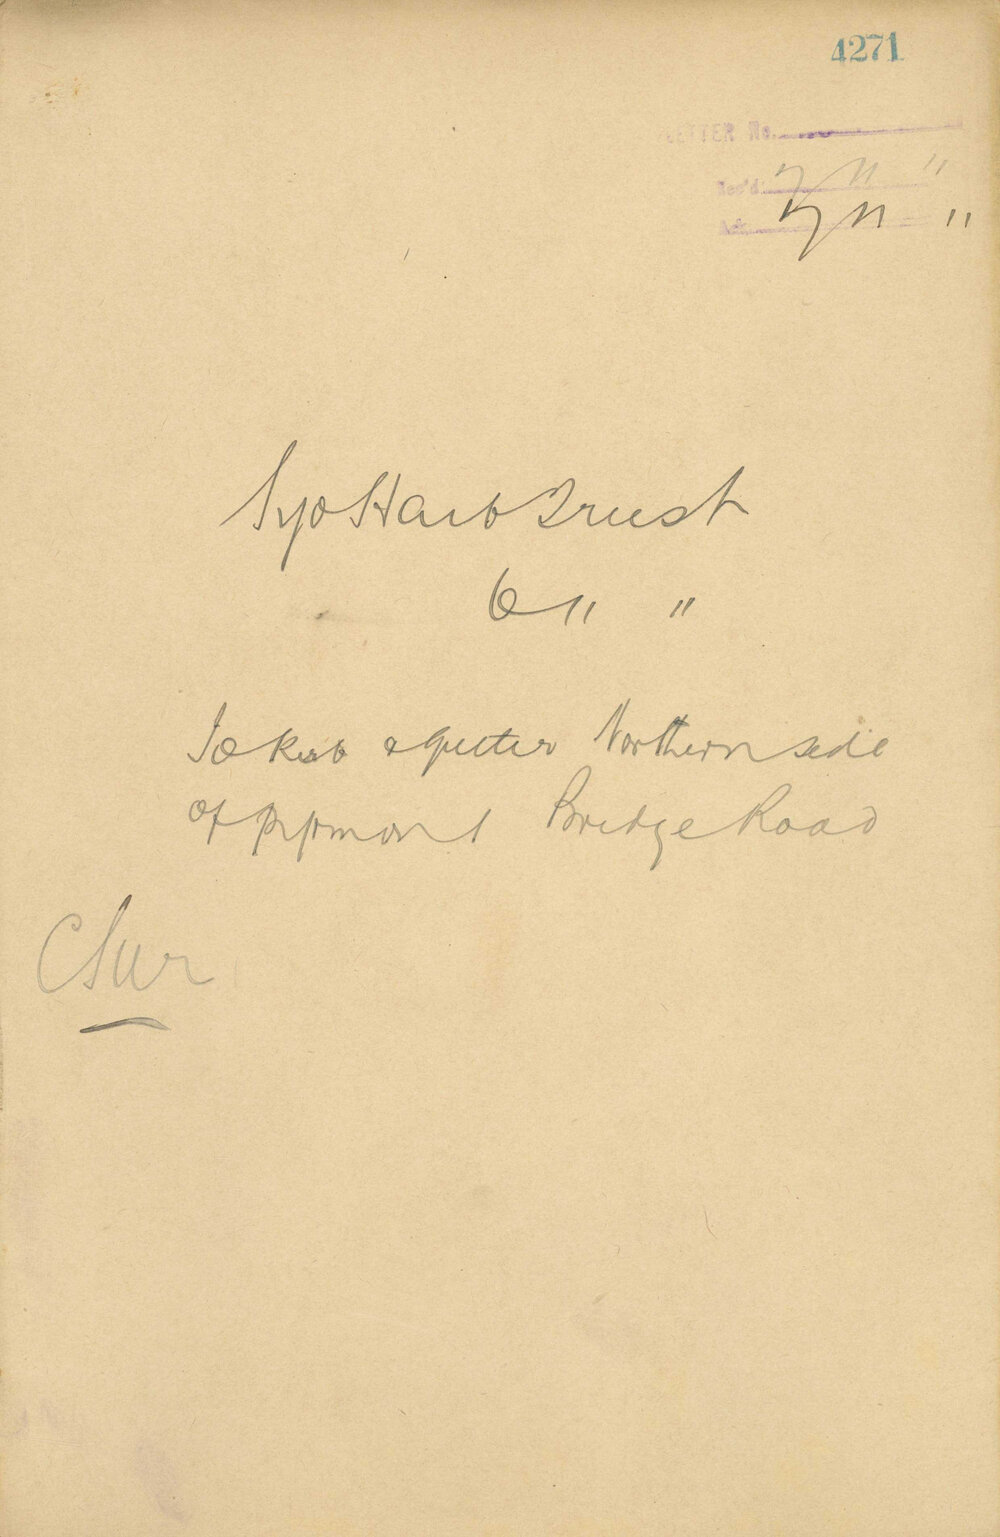 4271
LETTER No.
Rec'd 7/11 "
Ack 7/11 "
Syd Harb Trust
6 11 "
To Kerb & gutter Northern side
of Pyrmont Bridge Road
C Sur